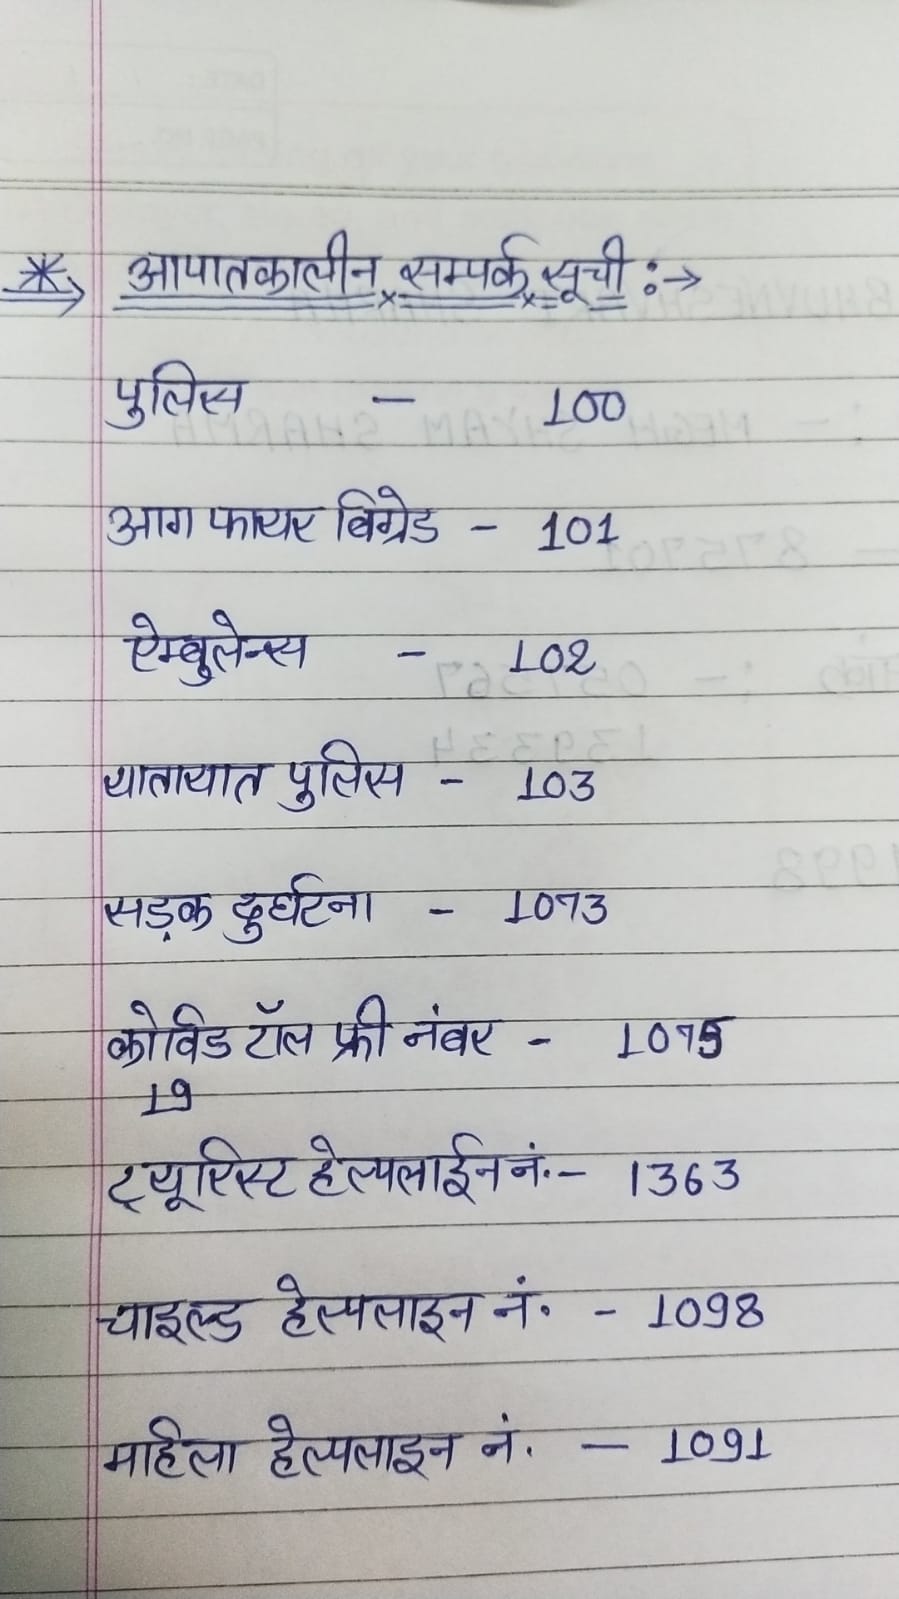 आपातकालीन सम्पर्क सूची :→
पुलिस - 100
आग फायर बिग्रेड - 101
ऐम्बुलेन्स - 102
यातायात पुलिस - 103
सड़क दुर्घटना - 1073
कोविड टॉल फ्री नंबर - 1075
19
ट्यूरिस्ट हेल्पलाईन नं. - 1363
चाइल्ड हेल्पलाइन नं. - 1098
महिला हेल्पलाइन नं. - 1091